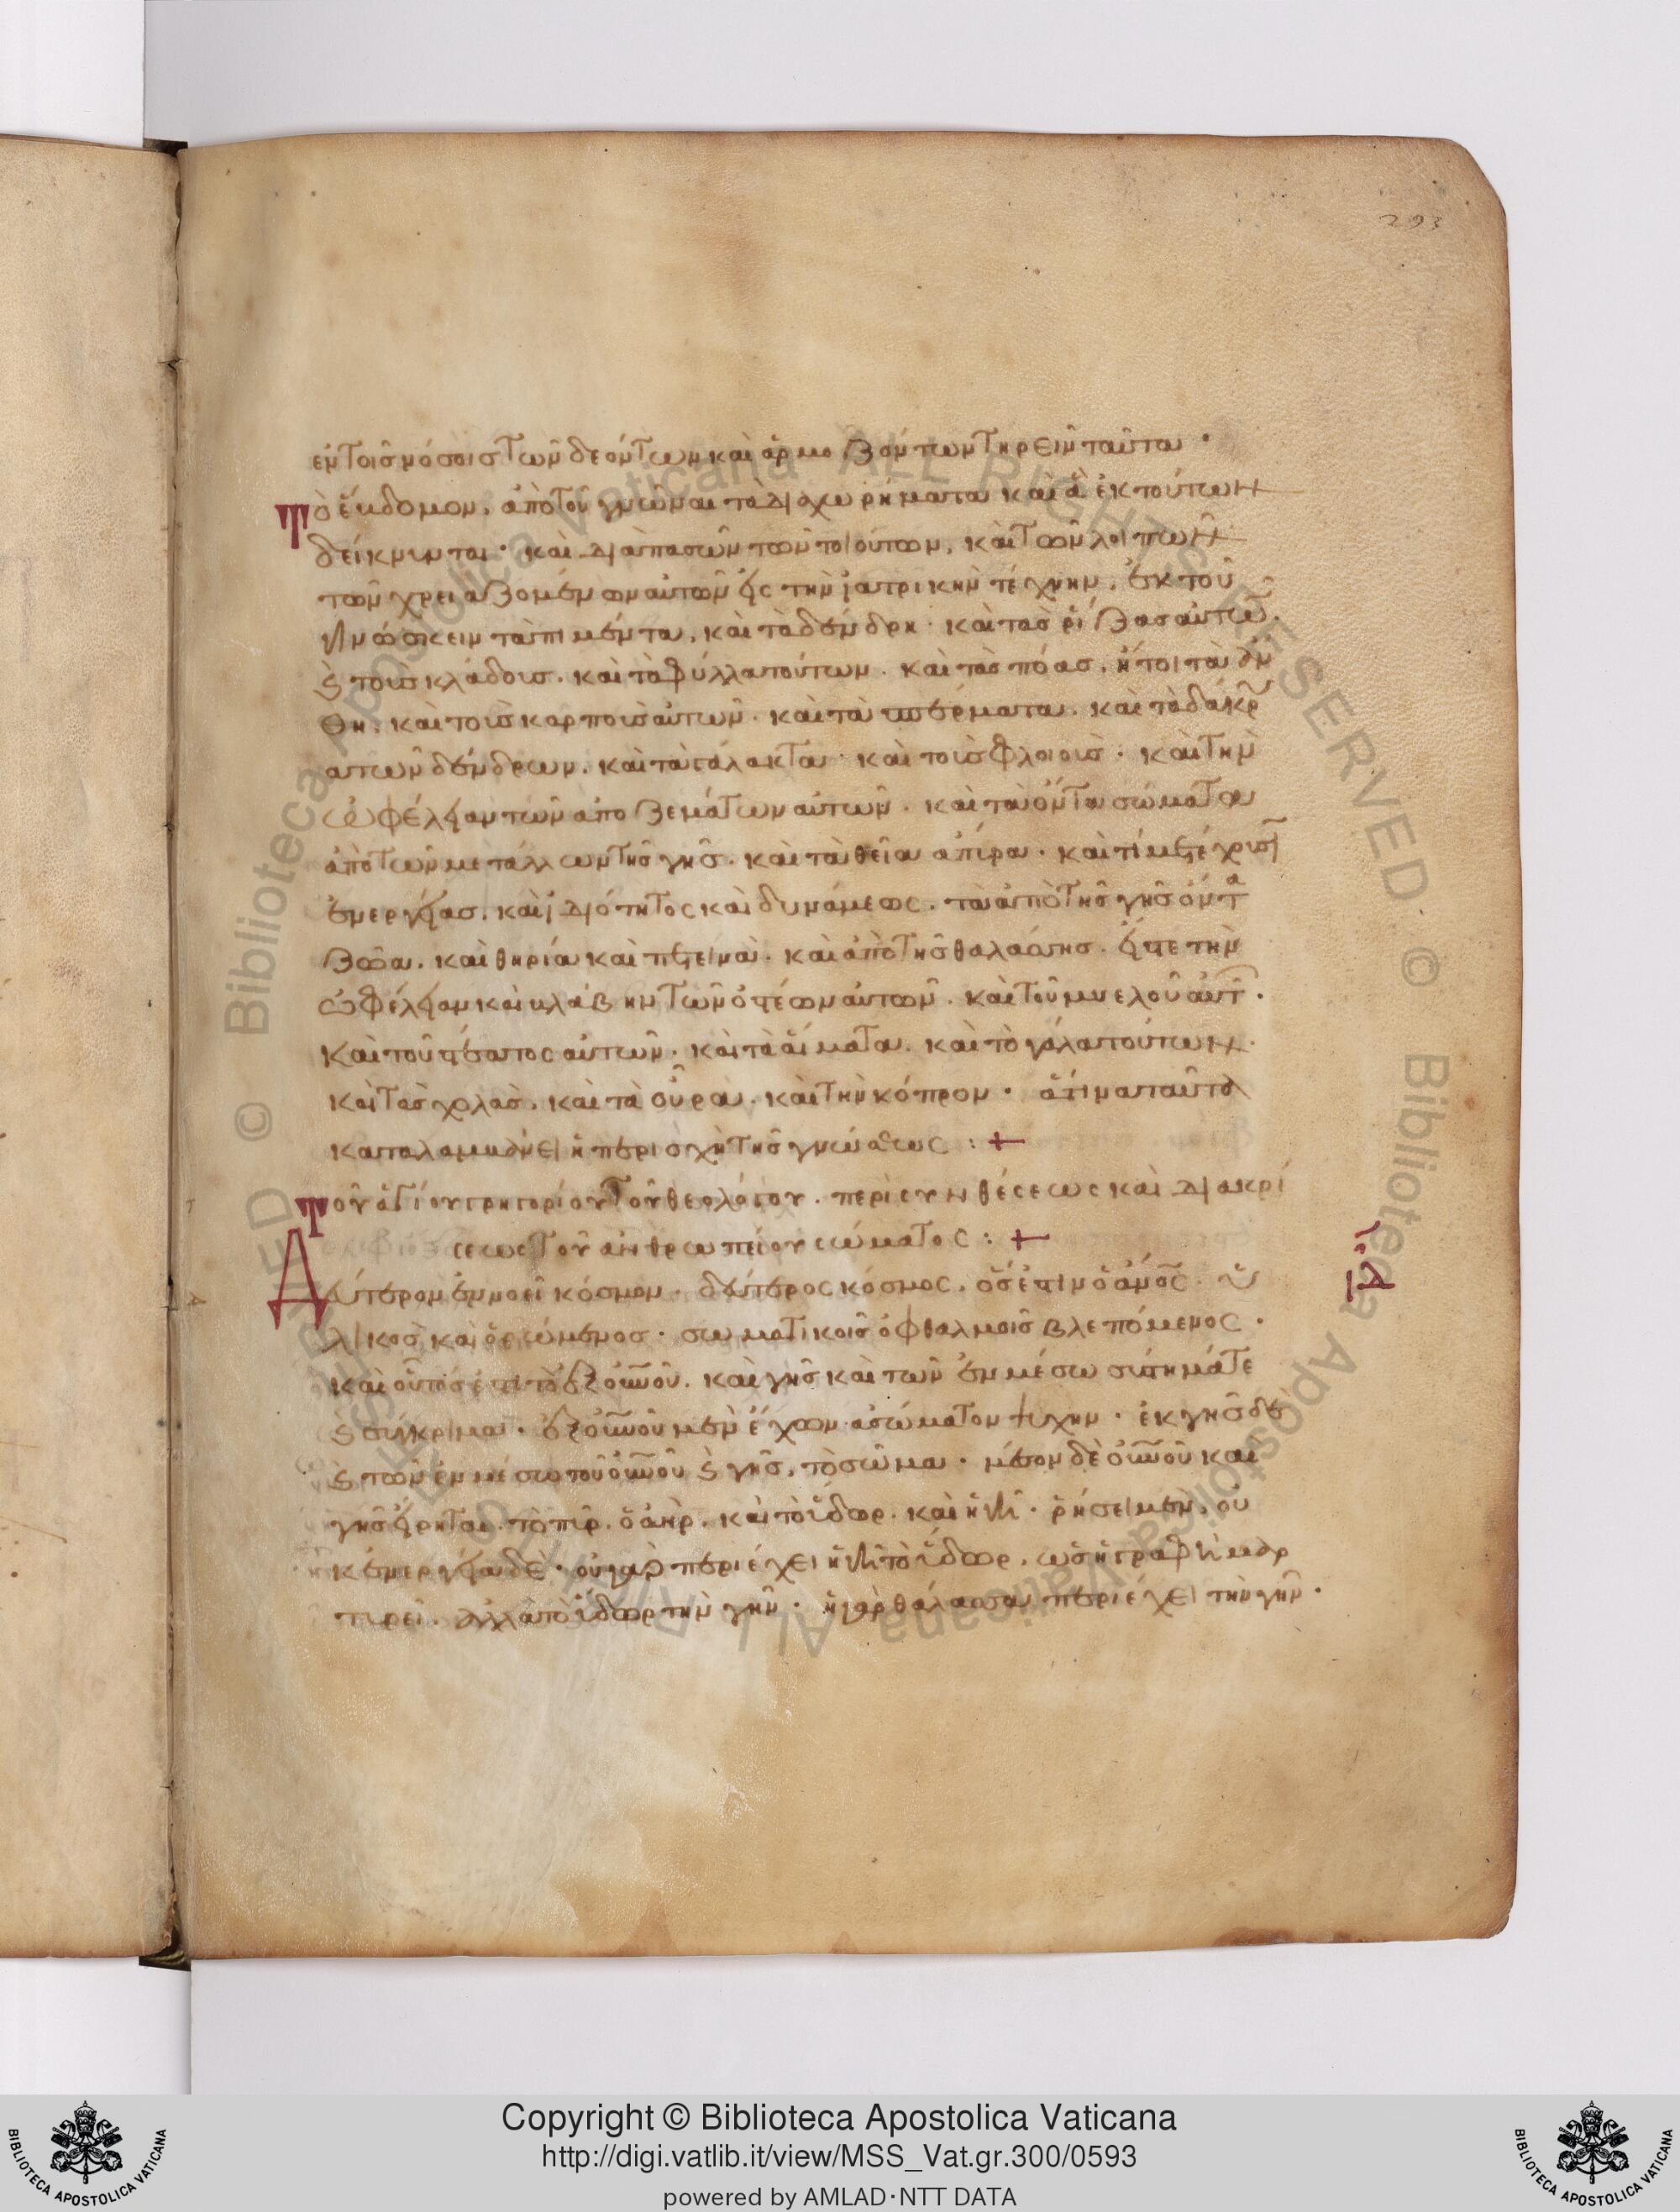 293
ἐν τοῖς νόσοις τῶν δεόντων καὶ ἁρμοζόντων τηρεῖν ταῦτα ·
Τὸ ἕβδομον, ἀπὸ τοῦ γνῶναι τὰ διαχωρήματα καὶ ἃ ἐκ τούτων
δείκνυνται · καὶ διαπασῶν τῶν τοιούτων, καὶ τῶν λοιπῶν
τῶν χρειαζομένων αὐτῶν εἰς τὴν ἰατρικὴν τέχνην. ἐκ τοῦ
γινώσκειν τὰ πιμέντα, καὶ τὰ δένδρη · καὶ τὰς ῥίζας αὐτῶν.
ϛ τοὺς κλάδους. καὶ τὰ φύλλα τούτων. καὶ τὰς πόας. ἤτοι τὰ ἄν
θη. καὶ τοὺς καρποὺς αὐτῶν. καὶ τὰ σπέρματα. καὶ τὰ δάκρ
α τῶν δένδρων. καὶ τὰ γάλακτα · καὶ τοὺς φλοιούς · καὶ τὴν
ὠφέλειαν τῶν ἀποζεμάτων αὐτῶν. καὶ τὰ ὄντα σώματα
ἀπὸ τῶν μετάλλων τῆς γῆς. καὶ τὰ θεῖα ἄπυρα · καὶ
ἐνεργείας. καὶ ἰδιότητος καὶ δυνάμεως. τὰ ἀπὸ τῆς γῆς ὄντα
ζῶα. καὶ θηρία καὶ πτεινά. καὶ ἀπὸ τῆς θαλάσσης. εἴτε τὴν
ὠφέλειαν καὶ βλάβην τῶν ὀστέων αὐτῶν. καὶ τοῦ μυελοῦ αὐτ.
καὶ τοῦ στέατος αὐτῶν. καὶ τὰ αἵματα. καὶ τὸ γάλα τούτων.
καὶ τὰς χολάς. καὶ τὰ οὖρα. καὶ τὴν κόπρον · ἅτινα ταῦτα
καταλαμβάνει ἡ περιοχὴ τῆς γνώσεως : +
Τοῦ ἁγίου γρηγορίου τοῦ θεολόγου. περὶ συνθέσεως καὶ διακρί
σεως τοῦ ἀνθρωπείου σώματος : +
Δεύτερον ἐννοεῖ κόσμον · δεύτερος κόσμος, ὅς ἐστιν ὁ ἄνος. ὑ
λικὸς καὶ ὁρώμενος · σωματικοῖς ὀφθαλμοῖς βλεπόμενος ·
καὶ οὗτός ἐστι τὸ ἐξ οὐνοῦ. καὶ γῆς καὶ τῶν ἐν μέσω συστημάτε
ϛ σύγκριμα · ἐξ οὐνοῦ μὲν ἔχων ἀσώματον ψυχήν · ἐκ γῆς δὲ
ϛ τῶν ἐν μέσω τοῦ οὐνοῦ ϛ γῆς, τὸ σῶμα · μέσον δὲ οὐνοῦ καὶ
γῆς εἴρηται. τὸ πῦρ. ὁ ἀήρ. καὶ τὸ ὕδωρ. καὶ ἡ γῆ · ῥήσει μέν. οὐ
κ ἐνεργεία δὲ · οὐ γὰρ περιέχει ἡ γῆ τὸ ὕδωρ. ὡς ἡ γραφὴ μαρ
τυρεῖ. ἀλλὰ τὸ ὕδωρ τὴν γῆν · ἡ γὰρ θάλασσα περιέχει τὴν γῆν ·
Copyright © Biblioteca Apostolica Vaticana
http://digi.vatlib.it/view/MSS_Vat.gr.300/0593
powered by AMLAD·NTT DATA